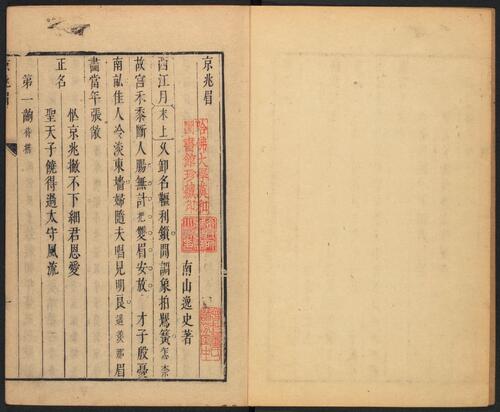 京兆眉
南山逸史著
西江月末上久卸名韁利鎖閒調象拍鶯簧怎奈
故宮禾黍斷人腸無計把雙眉安放 才子殷憂
南畝佳人冷淡東墻婦隨夫唱見明良還羨那眉
畫當年張敞
正名
京兆撇不下細君恩愛
聖天子饒得過太守風流
第一
京兆眉
哈佛大學漢和
圖書館珍藏印